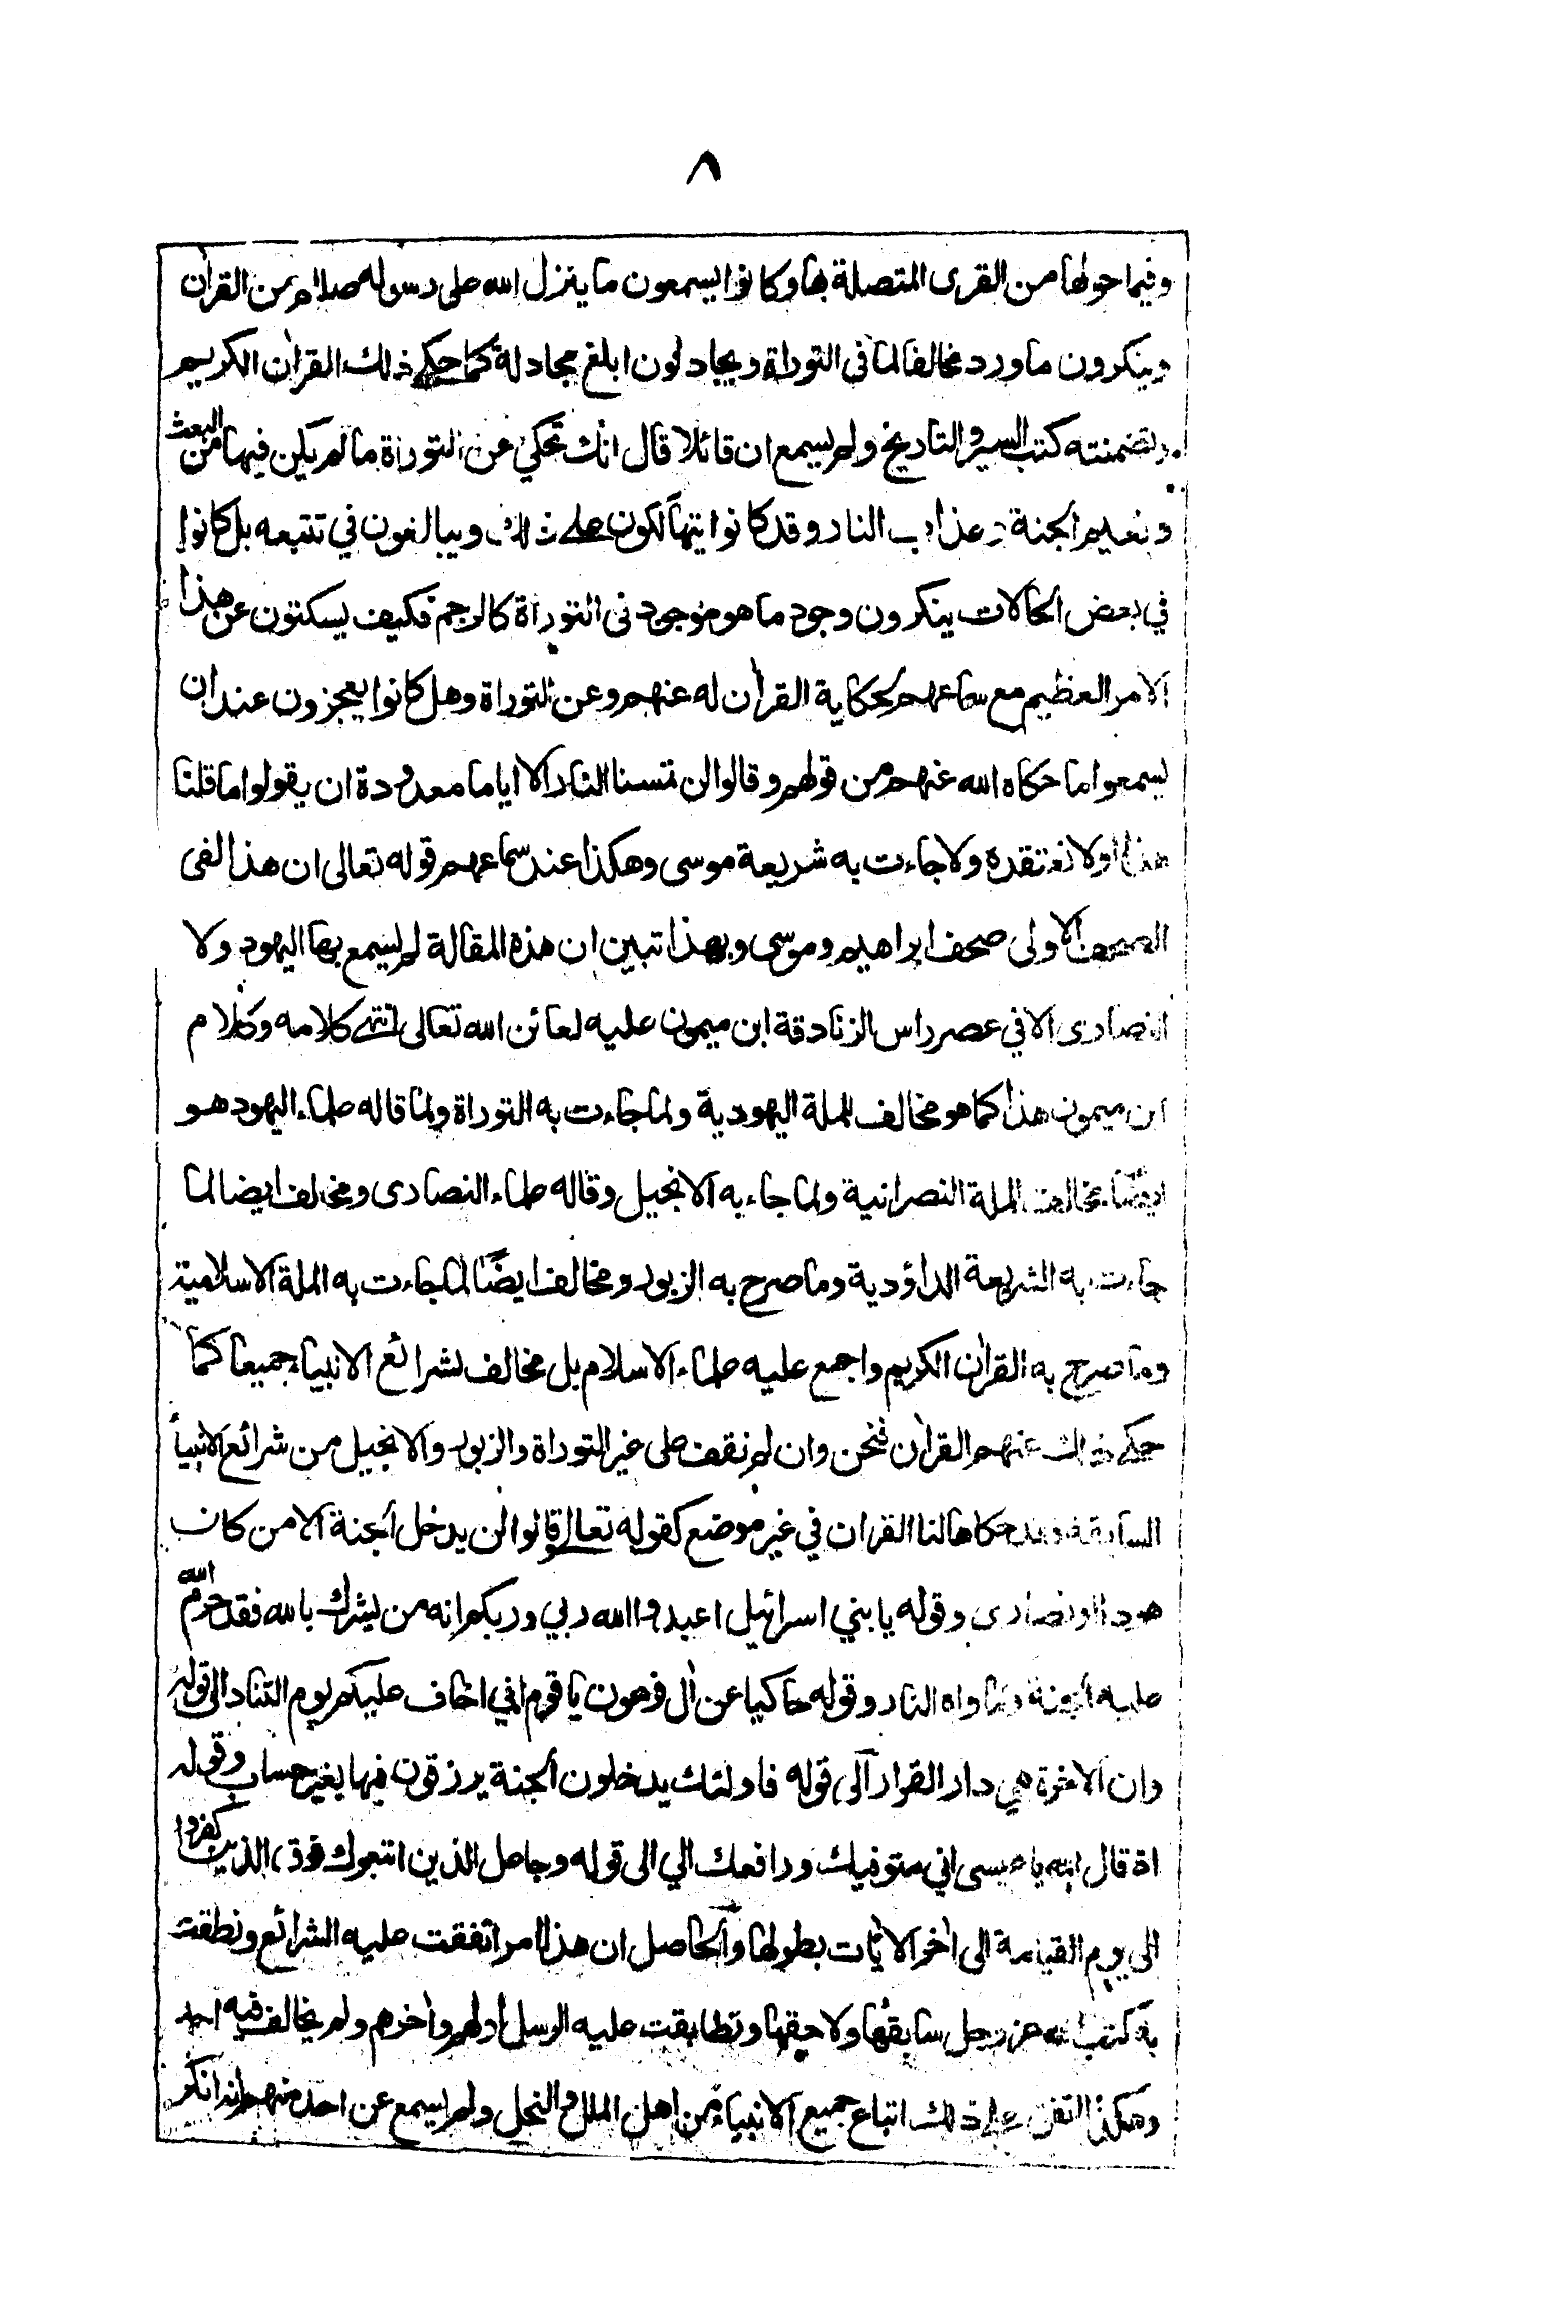 ٨
وفيما حولها من القرى المتصلة بها وكانوا يسمعون ما ينزل الله على رسوله صلام من القرآن
وينكرون ما ورد مخالفا لما في التوراة ويجادلون ابلغ مجادلة كما حكى ذلك القرآن الكريم
وتضمنته كتب السير والتاريخ ولم يسمع ان قائلا قال انك تحكي عن التوراة ما لم يكن فيها من البعث
ونعيم الجنة وعذاب النار وقد كانوا يتهالكون على ذلك ويبالغون في تتبعه بل كانوا
في بعض الحالات ينكرون وجود ما هو موجود في التوراة كالرجم فكيف يسكتون عن هذا
الامر العظيم مع سماعهم لحكاية القرآن له عنهم وعن التوراة وهل كانوا يعجزون عند ان
يسمعوا ما حكاه الله عنهم من قولهم وقالوا لن تمسنا النار الا اياما معدودة ان يقولوا ما قلنا
هذا ولا نعتقده ولا جاءت به شريعة موسى وهكذا عند سماعهم قوله تعالى ان هذا لفى
الصحف الاولى صحف ابراهيم وموسى وبهذا تبين ان هذه المقالة لم يسمع بها اليهود ولا
النصارى الا في عصر راس الزنادقة ابن ميمون عليه لعائن الله تعالى انتهى كلامه وكلام
ابن ميمون هذا كما هو مخالف للملة اليهودية ولما جاءت به التوراة ولما قاله علماء اليهود هو
ايضًا مخالف الملة النصرانية ولما جاء به الانجيل وقاله علماء النصارى ومخالف ايضا لما
جاءت به الشريعة الداؤدية وما صرح به الزبور ومخالف ايضًا لما جاءت به الملة الاسلامية
وما صرح به القرآن الكريم واجمع عليه علماء الاسلام بل مخالف لشرائع الانبياء جميعا كما
حكى ذلك عنهم القرآن فنحن وان لم نقف على غير التوراة والزبور والانجيل من شرائع الانبيأ
السابقة فقد حكاها لنا القران في غير موضع كقوله تعالى وقالوا لن يدخل الجنة الا من كان
هودا او نصارى وقوله يا بني اسرائيل اعبدوا الله ربي وربكم انه من يشرك بالله فقد حرم الله
عليه الجنة وماواه النار وقوله حاكيا عن آل فرعون يا قوم اني اخاف عليكم يوم التناد الى قوله
وان الاخرة هي دار القرار الى قوله فاولئك يدخلون الجنة يرزقون فيها بغير حساب وقوله
اذ قال الله يا عيسى اني متوفيك ورافعك الي الى قوله وجاعل الذين اتبعوك فوق الذين كفروا
الى يوم القيامة الى اخر الايات بطولها والحاصل ان هذا امر اتفقت عليه الشرائع ونطقت
به كتب الله عز وجل سابقها ولاحقها وتطابقت عليه الرسل اولهم وآخرهم ولم يخالف فيه احد
وهكذا اتفق على ذلك اتباع جميع الانبياء من اهل الملل والنحل ولم يسمع عن احد منهم انه انكر